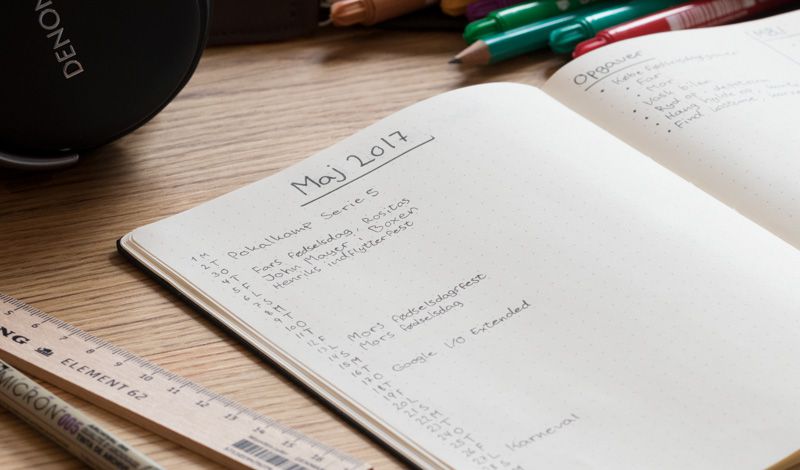 DENON
Maj 2017
1 M Pokalkamp Serie 5
2 T
3 O
4 T Fars fødselsdag, Rositas
5 F John Mayer i Boxen
6 L Henriks indflytterfest
7 S
8 M
9 T
10 O
11 T
12 F
13 L Mors fødselsdagsfest
14 S Mors fødselsdag
15 M
16 T
17 O Google I/O Extended
18 T
19 F
20 L
21 S
22 M
23 T
24 O
25 T Karneval
26 F
Opgaver
• Købe fødselsdagsgaver
• Far
• Mor
• Vask bilen
• Ryd op
• Hæng hylde op
• Find
5 6 7 8 9 10 11 12 13 14 15 16
ELEMENT 62
MICRON 005